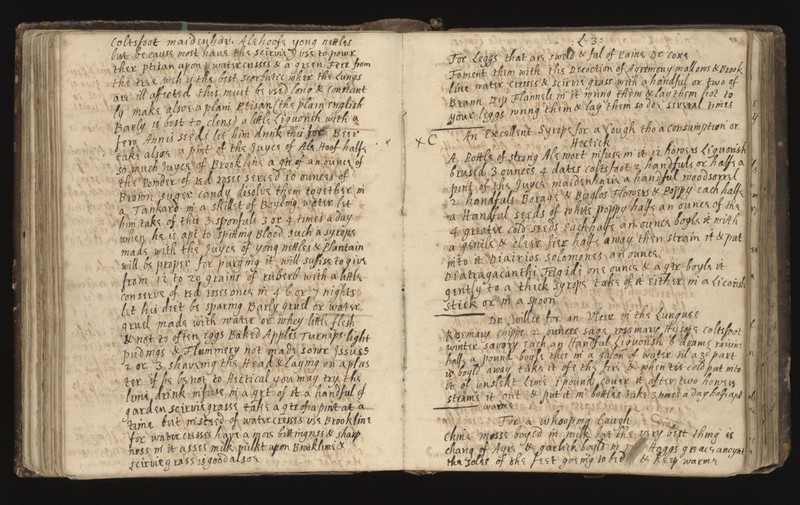 Coltsfoot maidenhair Alehoofe yong nettles
but because most have the scirvie I use to powr
ther ptisan upon watercrisses & a green Firr from
the tree wch is the best scorbutic wher the lungs
are ill afected this must be used long & constant
ly make alsoe a plain Ptisan (the plain english
Barly is best to clens) a little Liquorish with a
few Annis seeds let him drink this for Beer
take alsoe a pint of the Juyce of Ale Hoof halfe
so much Juyce of Brooklime a qtr of an ounce of
the Ponder of red roses serced 10 ounces of
Brown suger candy disolve them together in
a Tankard in a skillet of Boyling water let
him take of this 3 spoonfuls 3 or 4 times a day
when he is apt to spitting Blood such a syrope
made with the Juyce of yong nettles & Plantain
will be proper for purging it will sufise to give
from 12 to 20 grains of ruberb with a little
conserve of red roses once in 4 6 or 7 nights
let his diet be sparing Barly gruil or water
gruil made with water or whey little flesh
& not to often eggs Baked Apples Turnips light
pudings & Flummery not made sower Issues
2 or 3 shaveing the Head & laying on a plas
ter if he be not to Hectical you may try the
lime drink infuse in a qrt of it a handful of
garden scirviegrasse take a qtr of a pint at a
time but insteed of watercresses use Brooklime
for watercresses have a more bittingnes & sharp
ness in it asses milk milkt upon Brooklime &
scirvie grass is good alsoe
L:3:
For Leggs that are sweld & ful of Paine Dr Coxe
Foment them with the Decoction of Agremony mallows & Brook
lime water cresses & scirvie grass with a handful or two of
Brann Dip Flannels in it wring them & lay them hot to
your Leggs wring them & lay them so doe several times
× C An Excellent Syrope for a Cough tho a consumption or
Hectick
A Bottle of strong Ale wort infuse in it 12 howers Liquorish
brused 3 ounces 4 dates coltsfoot 2 handfuls or halfe a
pint of the Juyce maidenhaire a handful woodsorrel
2 handfuls Borage & Buglos Flowers & Poppy each halfe
a Handful seeds of white poppy halfe an ounce of the
4 greater cold seeds each halfe an ounce boyle it with
a gentle & clear fier halfe away then strain it & put
into it Diairios solomones an ounce
Diatragacanthi Frigidi one ounce & a qtr boyle it
gently to a thick syrope take of it either in a licorish
stick or in a spoon
Dr Willis for an Ulcer in the Lungues
Rosemary chipps 12 ounces sage rosemary Hysope coltsfoot
winter savory each an Handful Liquorish 6 drams raisins
halfe a pound boyle this in a galon of water til a 3d part
is boyld away take it off the fire & when tis cold put into
it of unslekt lime 1 pound cover it after two howers
straine it out & put it in bottles take 3 times a day halfe a pt
warme
For a whooping Cough
Chine mosse boyled in milk but the very best thing is
chang of Ayre & garlick boyld in Hoggs greace anoynt
the soles of the Feet going to bed & keep warme